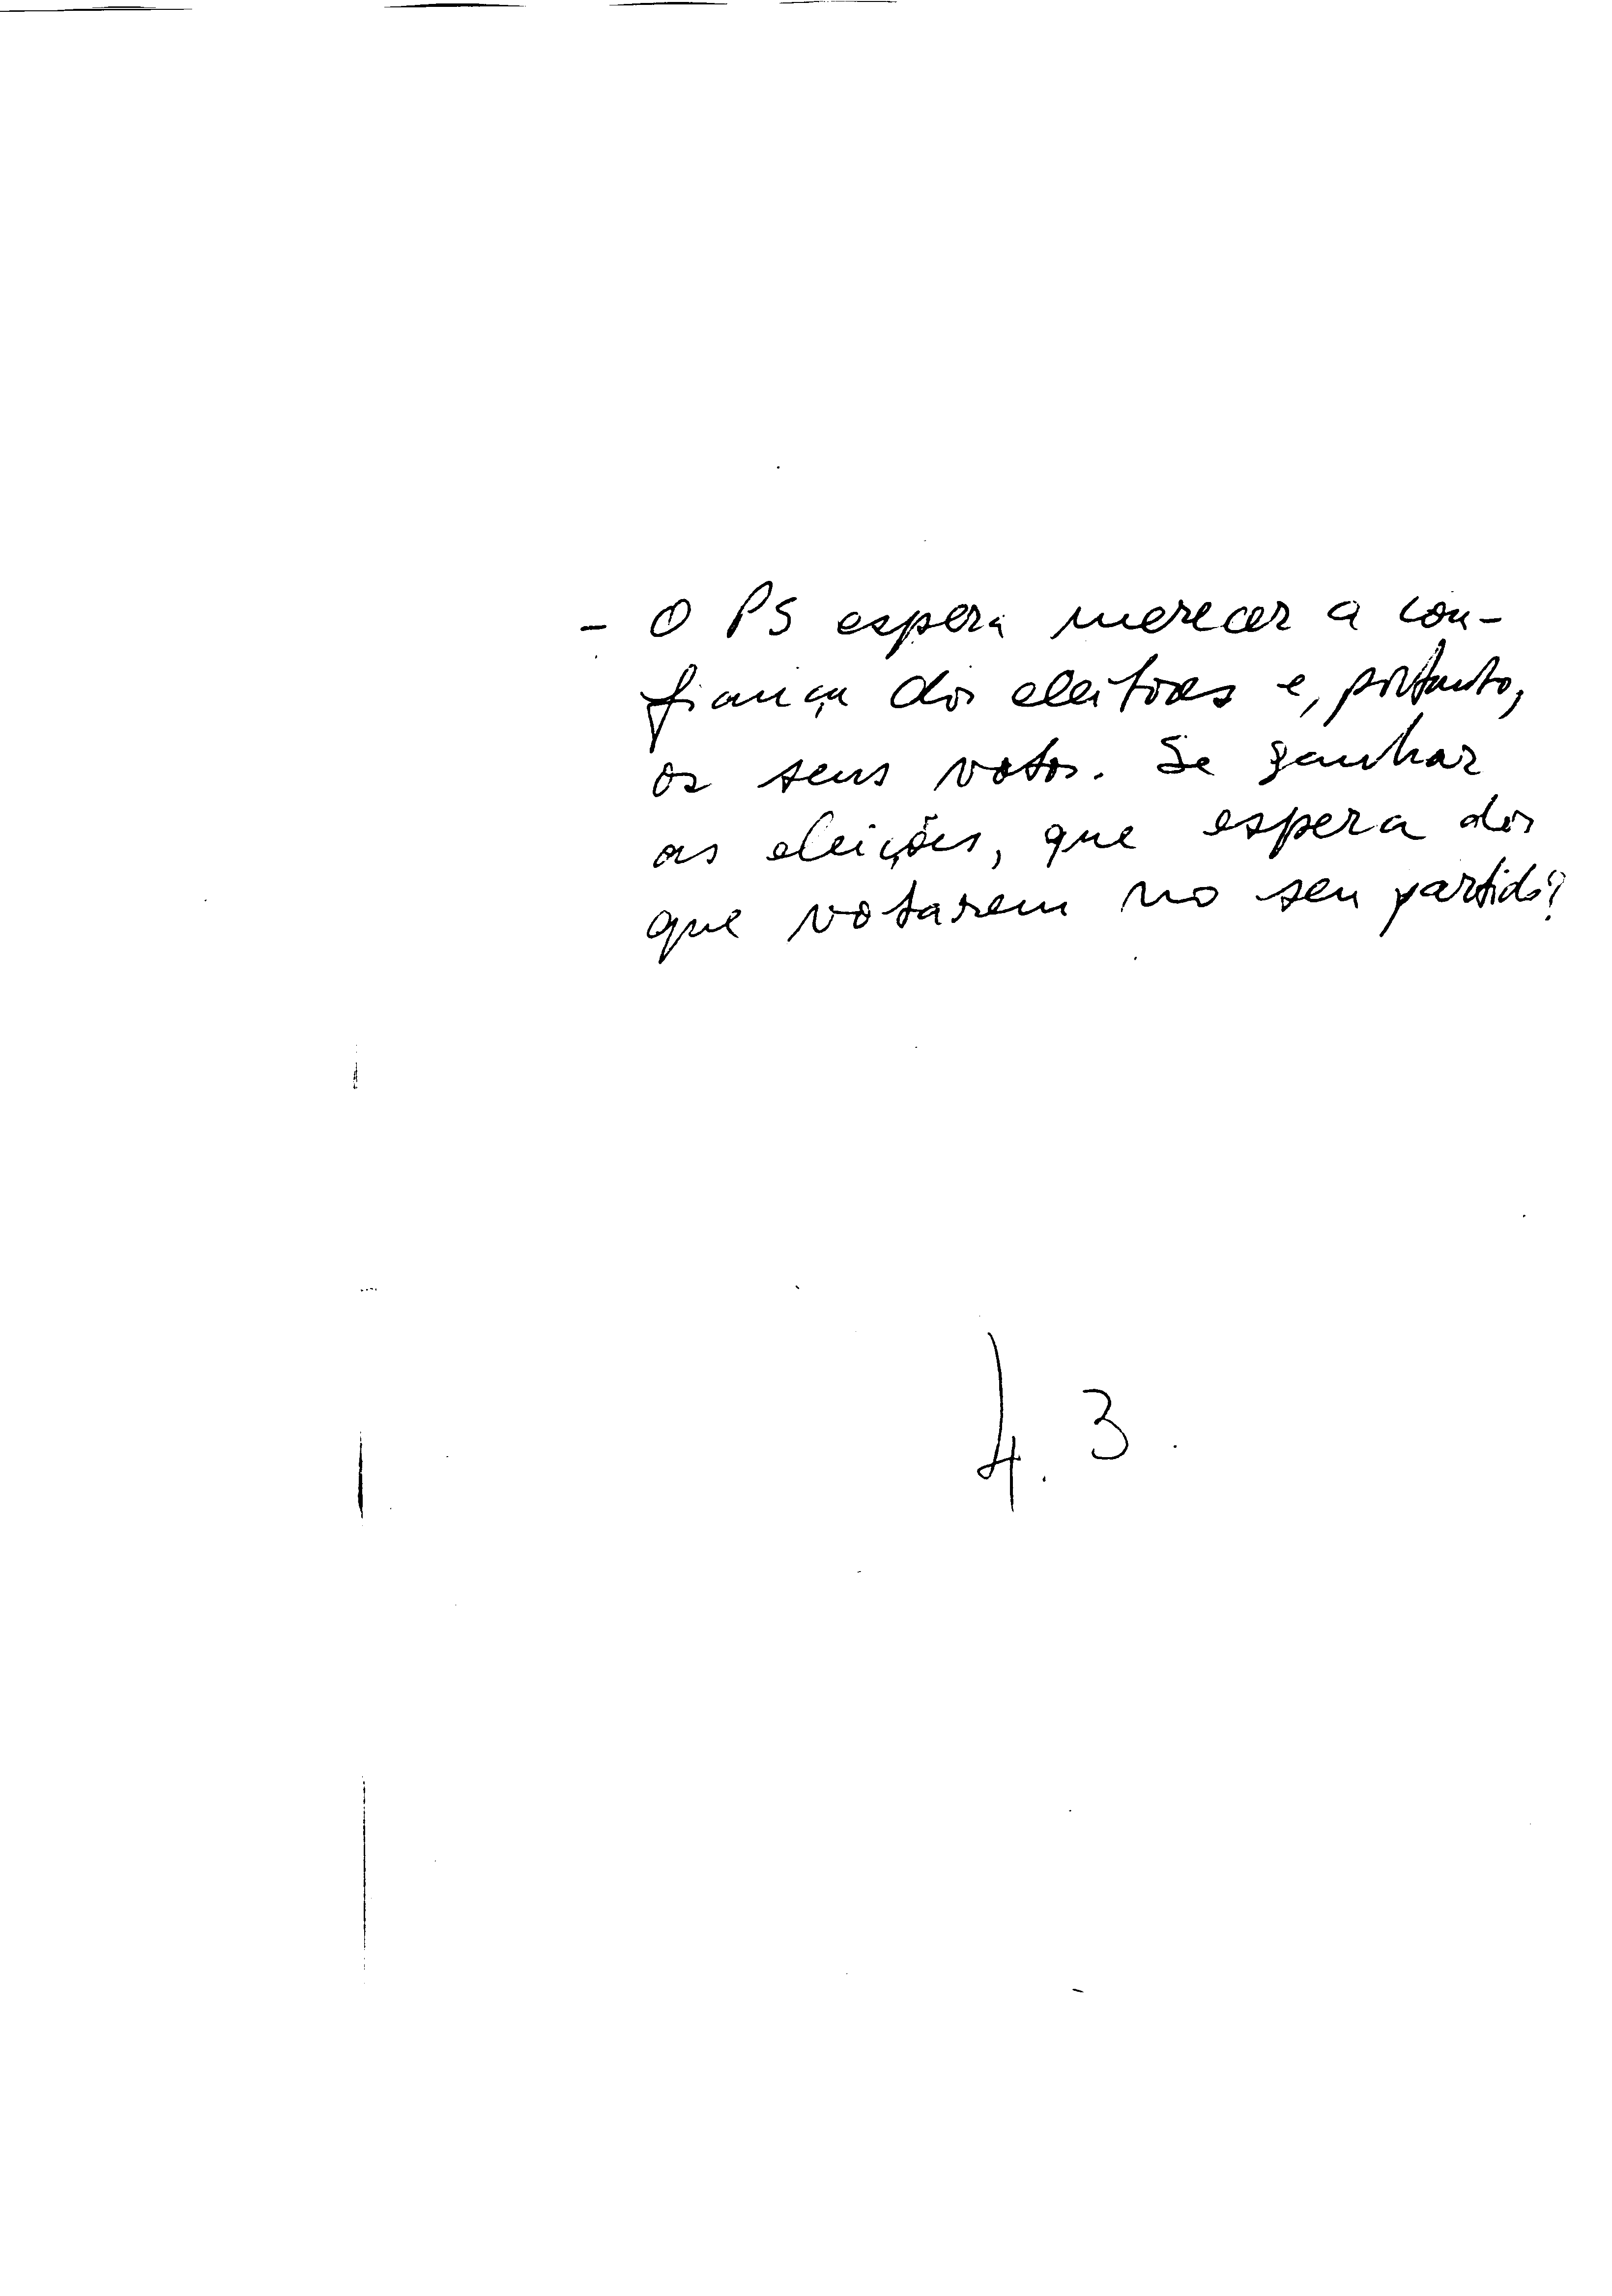 - O PS espera merecer a con-
fiança dos eleitores e, portanto,
os seus votos. Se ganhar
as eleições, que espera dos
que votarem no seu partido?
4.3.